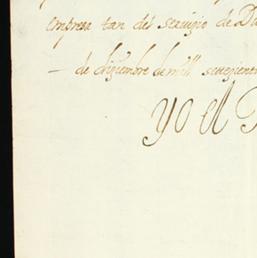 empresa tan del seruiçio de Di
— de diçiembre de mill seteçient
YO el R